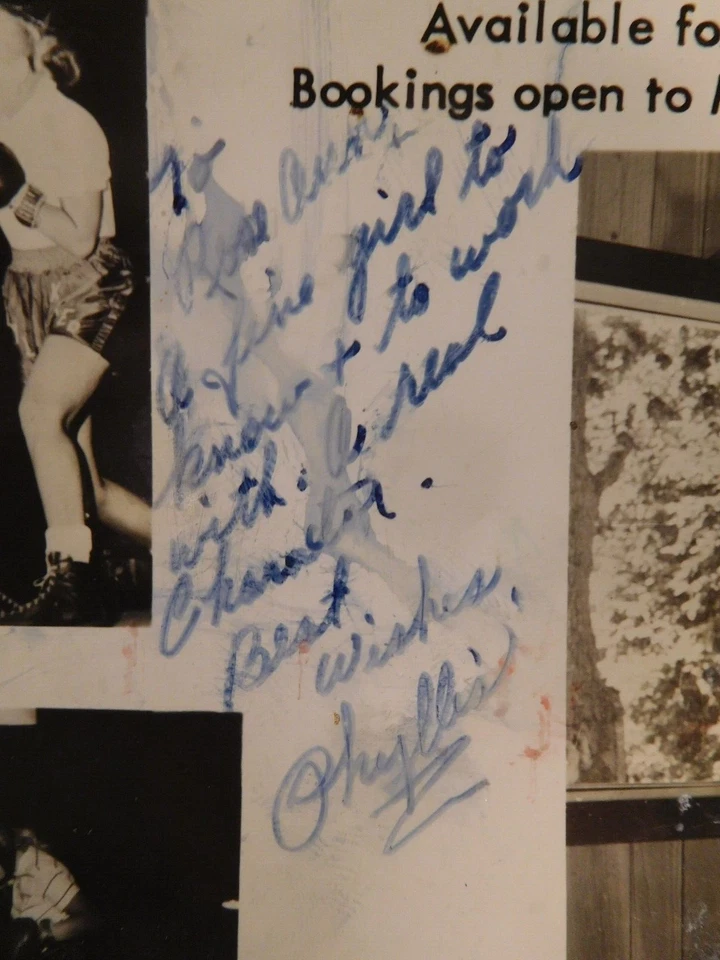 Available fo
Bookings open to
To
Rose Ann,
A fine girl to
know + to work
with. A real
Character.
Best
Wishes,
Phyllis